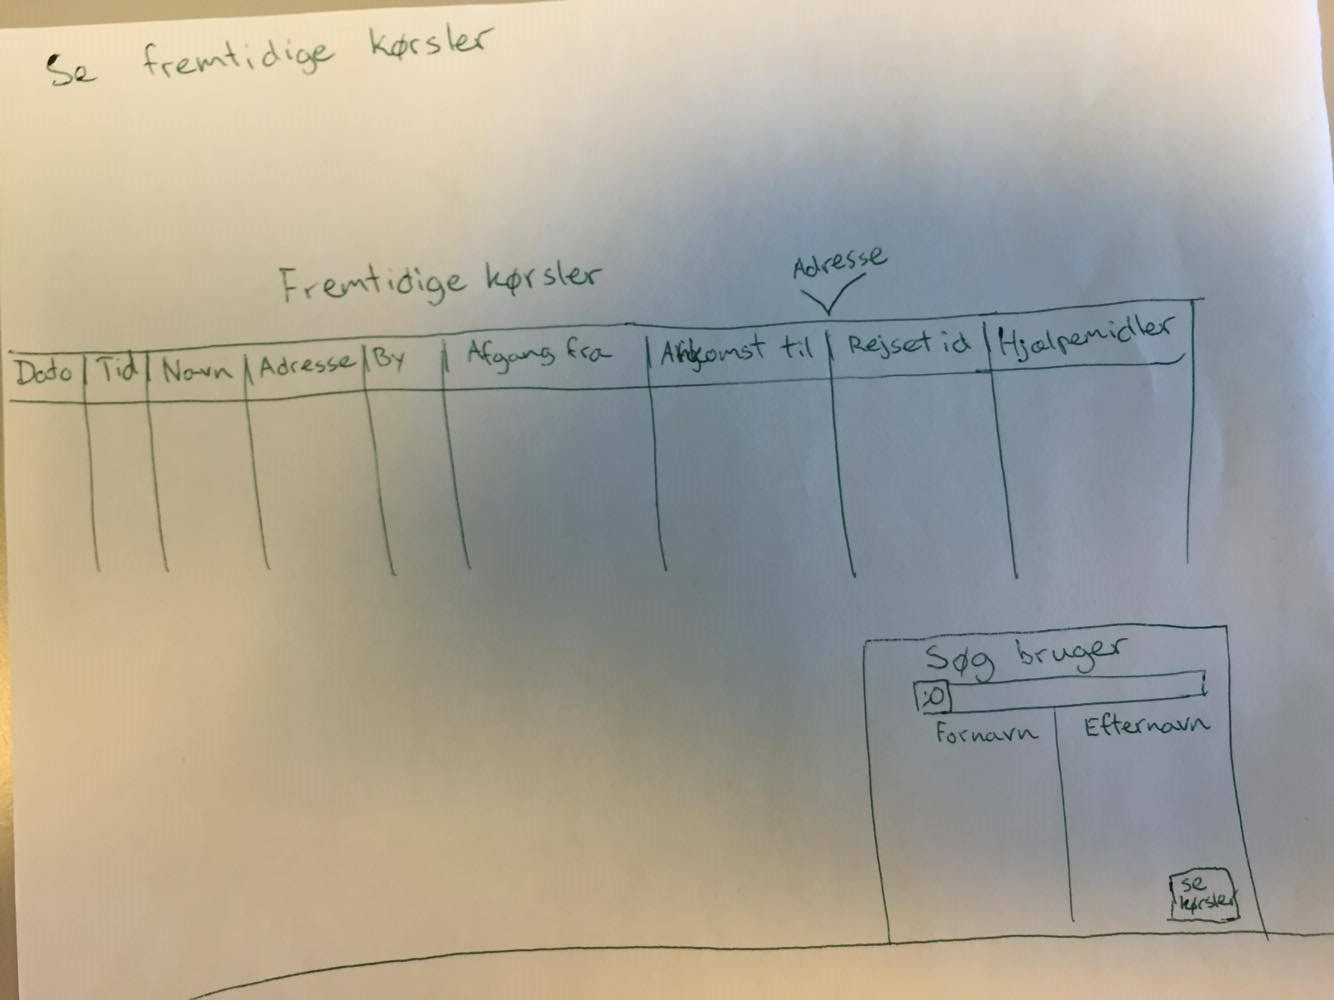 Se fremtidige kørsler
Fremtidige kørsler
Adresse
Dato Tid Navn Adresse By Afgang fra Ankomst til Rejsetid Hjælpemidler
Søg bruger
Fornavn Efternavn
se
kørsler